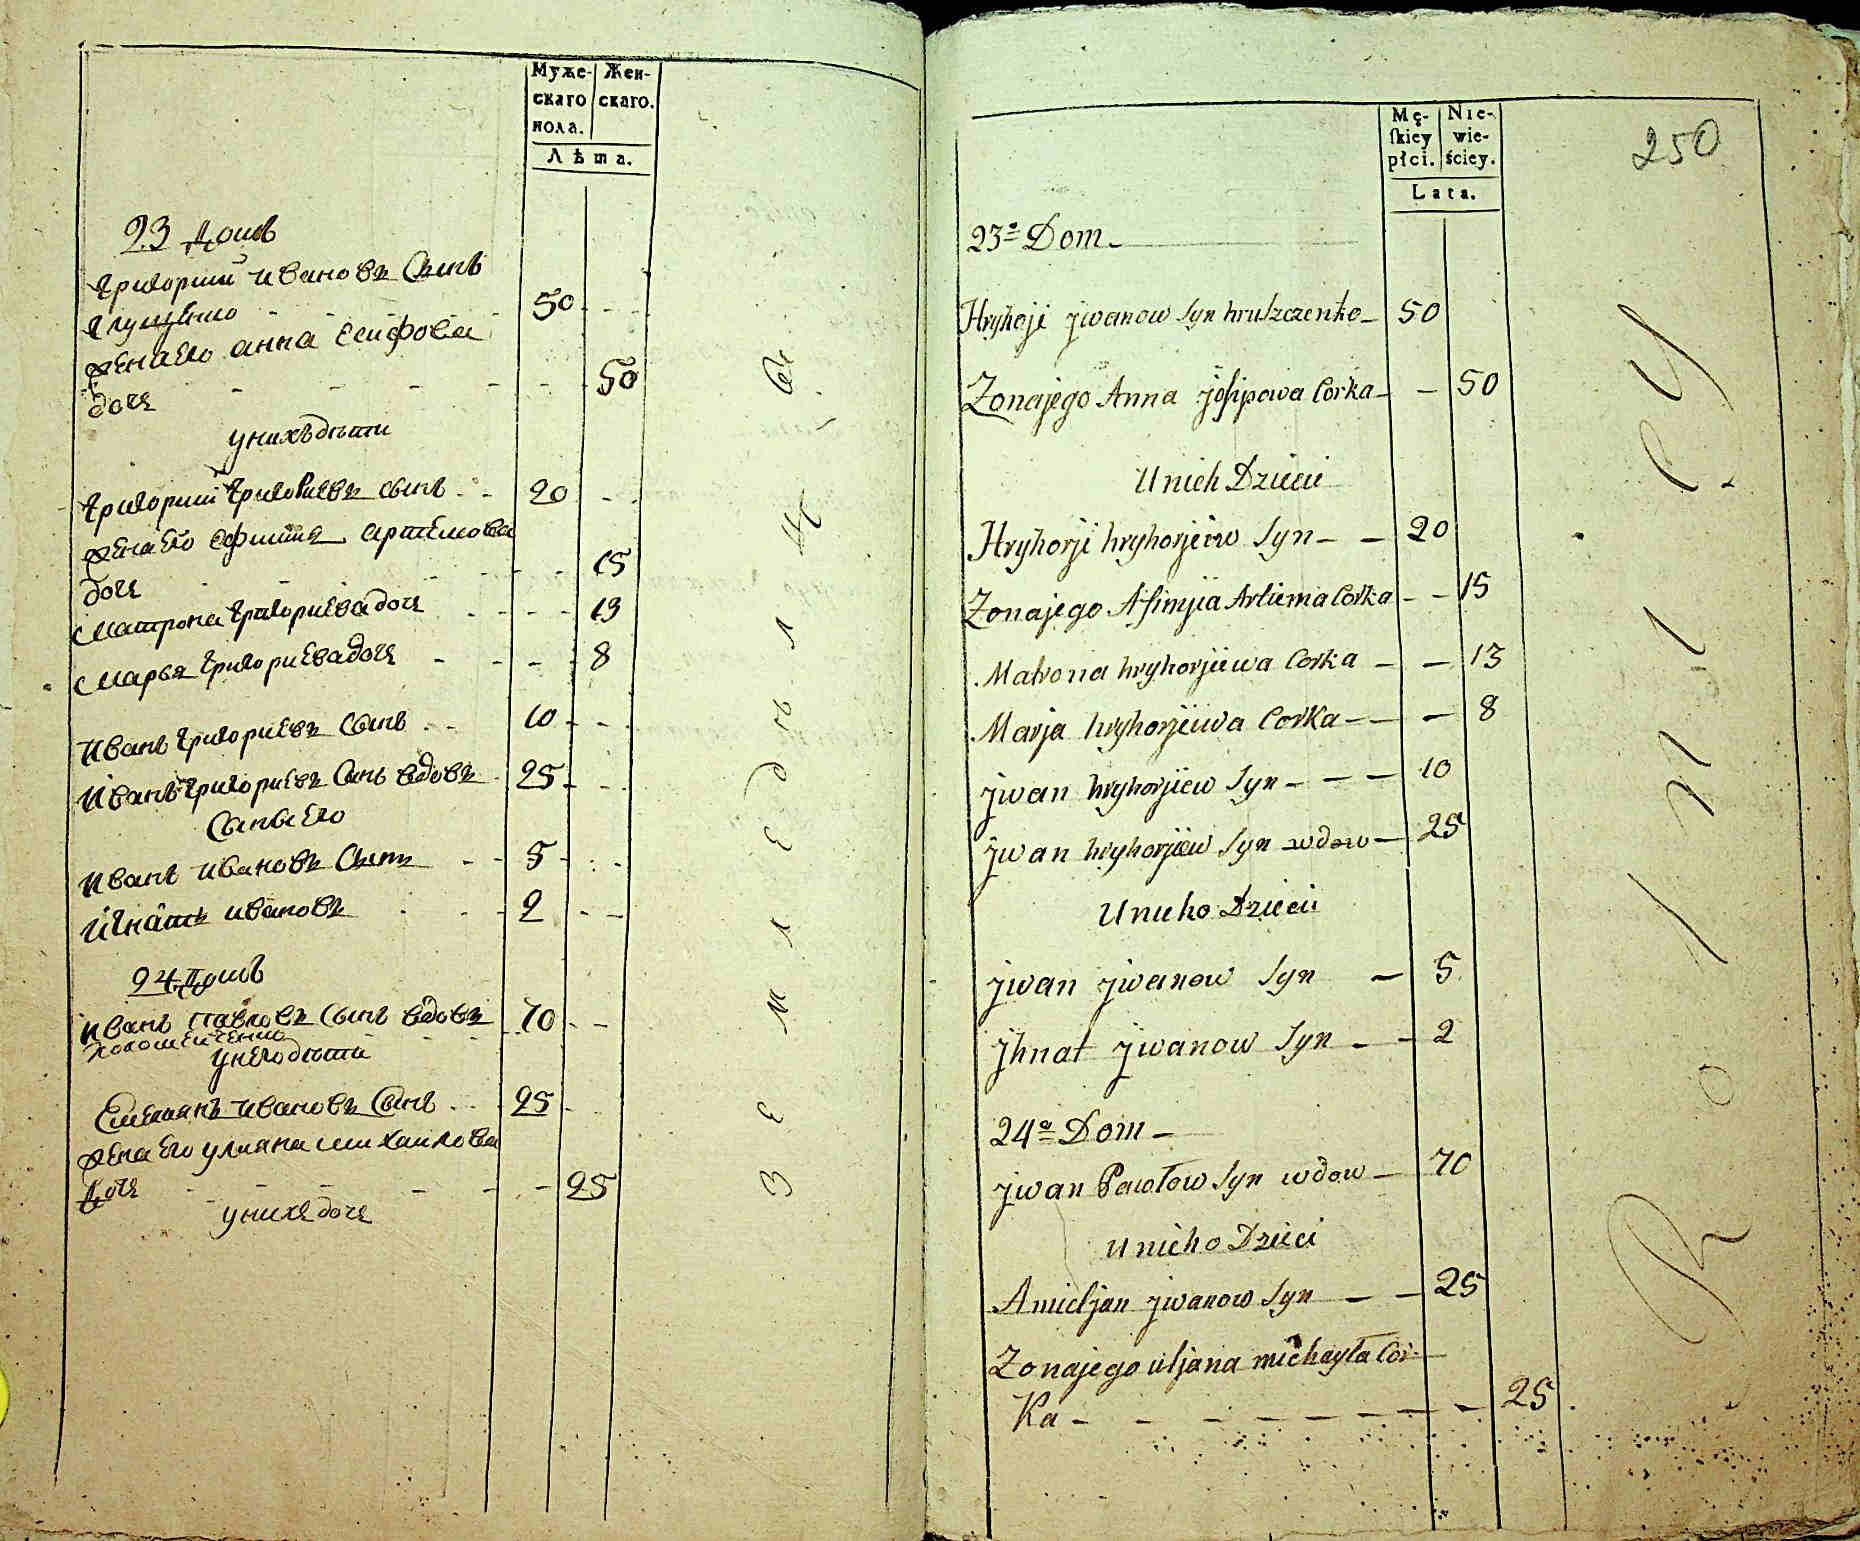 Муже- Жен-
скаго скаго.
пола.
Лѣта.
23 Домъ
Григорий Ивановъ Сынъ
Глущенко - - - 50 - -
жена его анна Есифова
дочь - - - - - 50
у нихъ дѣти
Григорий Григориевъ сынъ - - 20 - -
жена его Офимия артемова
дочь - - - - 15
Матрона Григориева дочь - - - 13
Марья Григориева дочь - - - 8
Иванъ Григориевъ Сынъ - - 10 - -
Иванъ Григориевъ Сынъ вдовъ - 25 - -
Сыны его
Иванъ Ивановъ Сынъ - - 5 - -
Игнатъ Ивановъ - - 2 - -
24 Домъ
Иванъ Павловъ Сынъ вдовъ 70 - -
у него дѣти
Емелиянъ Ивановъ Сынъ - - 25 -
жена его улияна михаилова
Дочь - - - - - - 25
у нихъ дочь
ЗЕМЛЕДѢЛ
Mę- Nie-
ſkiey wie-
płci. ściey.
Lata.
250
23ª Dom -
Hryhoji jwanow Syn hruszczenko - 50
Zonajego Anna josipowa Corka - - 50
U nich Dzieci
Hryhorji hryhorjiew Syn - - 20
Zonajego Afimjia Artiema Corka - - 15
Matrona hryhorjiewa Corka - - 13
Marja hryhorjiewa Corka - - - 8
jwan hryhorjiew Syn - - - 10
jwan hryhorjiew Syn wdow - 25
U nieho Dzieci
jwan jwanow Syn - 5
jhnat jwanow Syn - - 2
24ª Dom -
jwan Pawołow Syn wdow - 70
U nieho Dzieci
Amieljan jwanow Syn - - 25
Zonajego uljana michayła Cor-
Ka - - - - - - - - 25